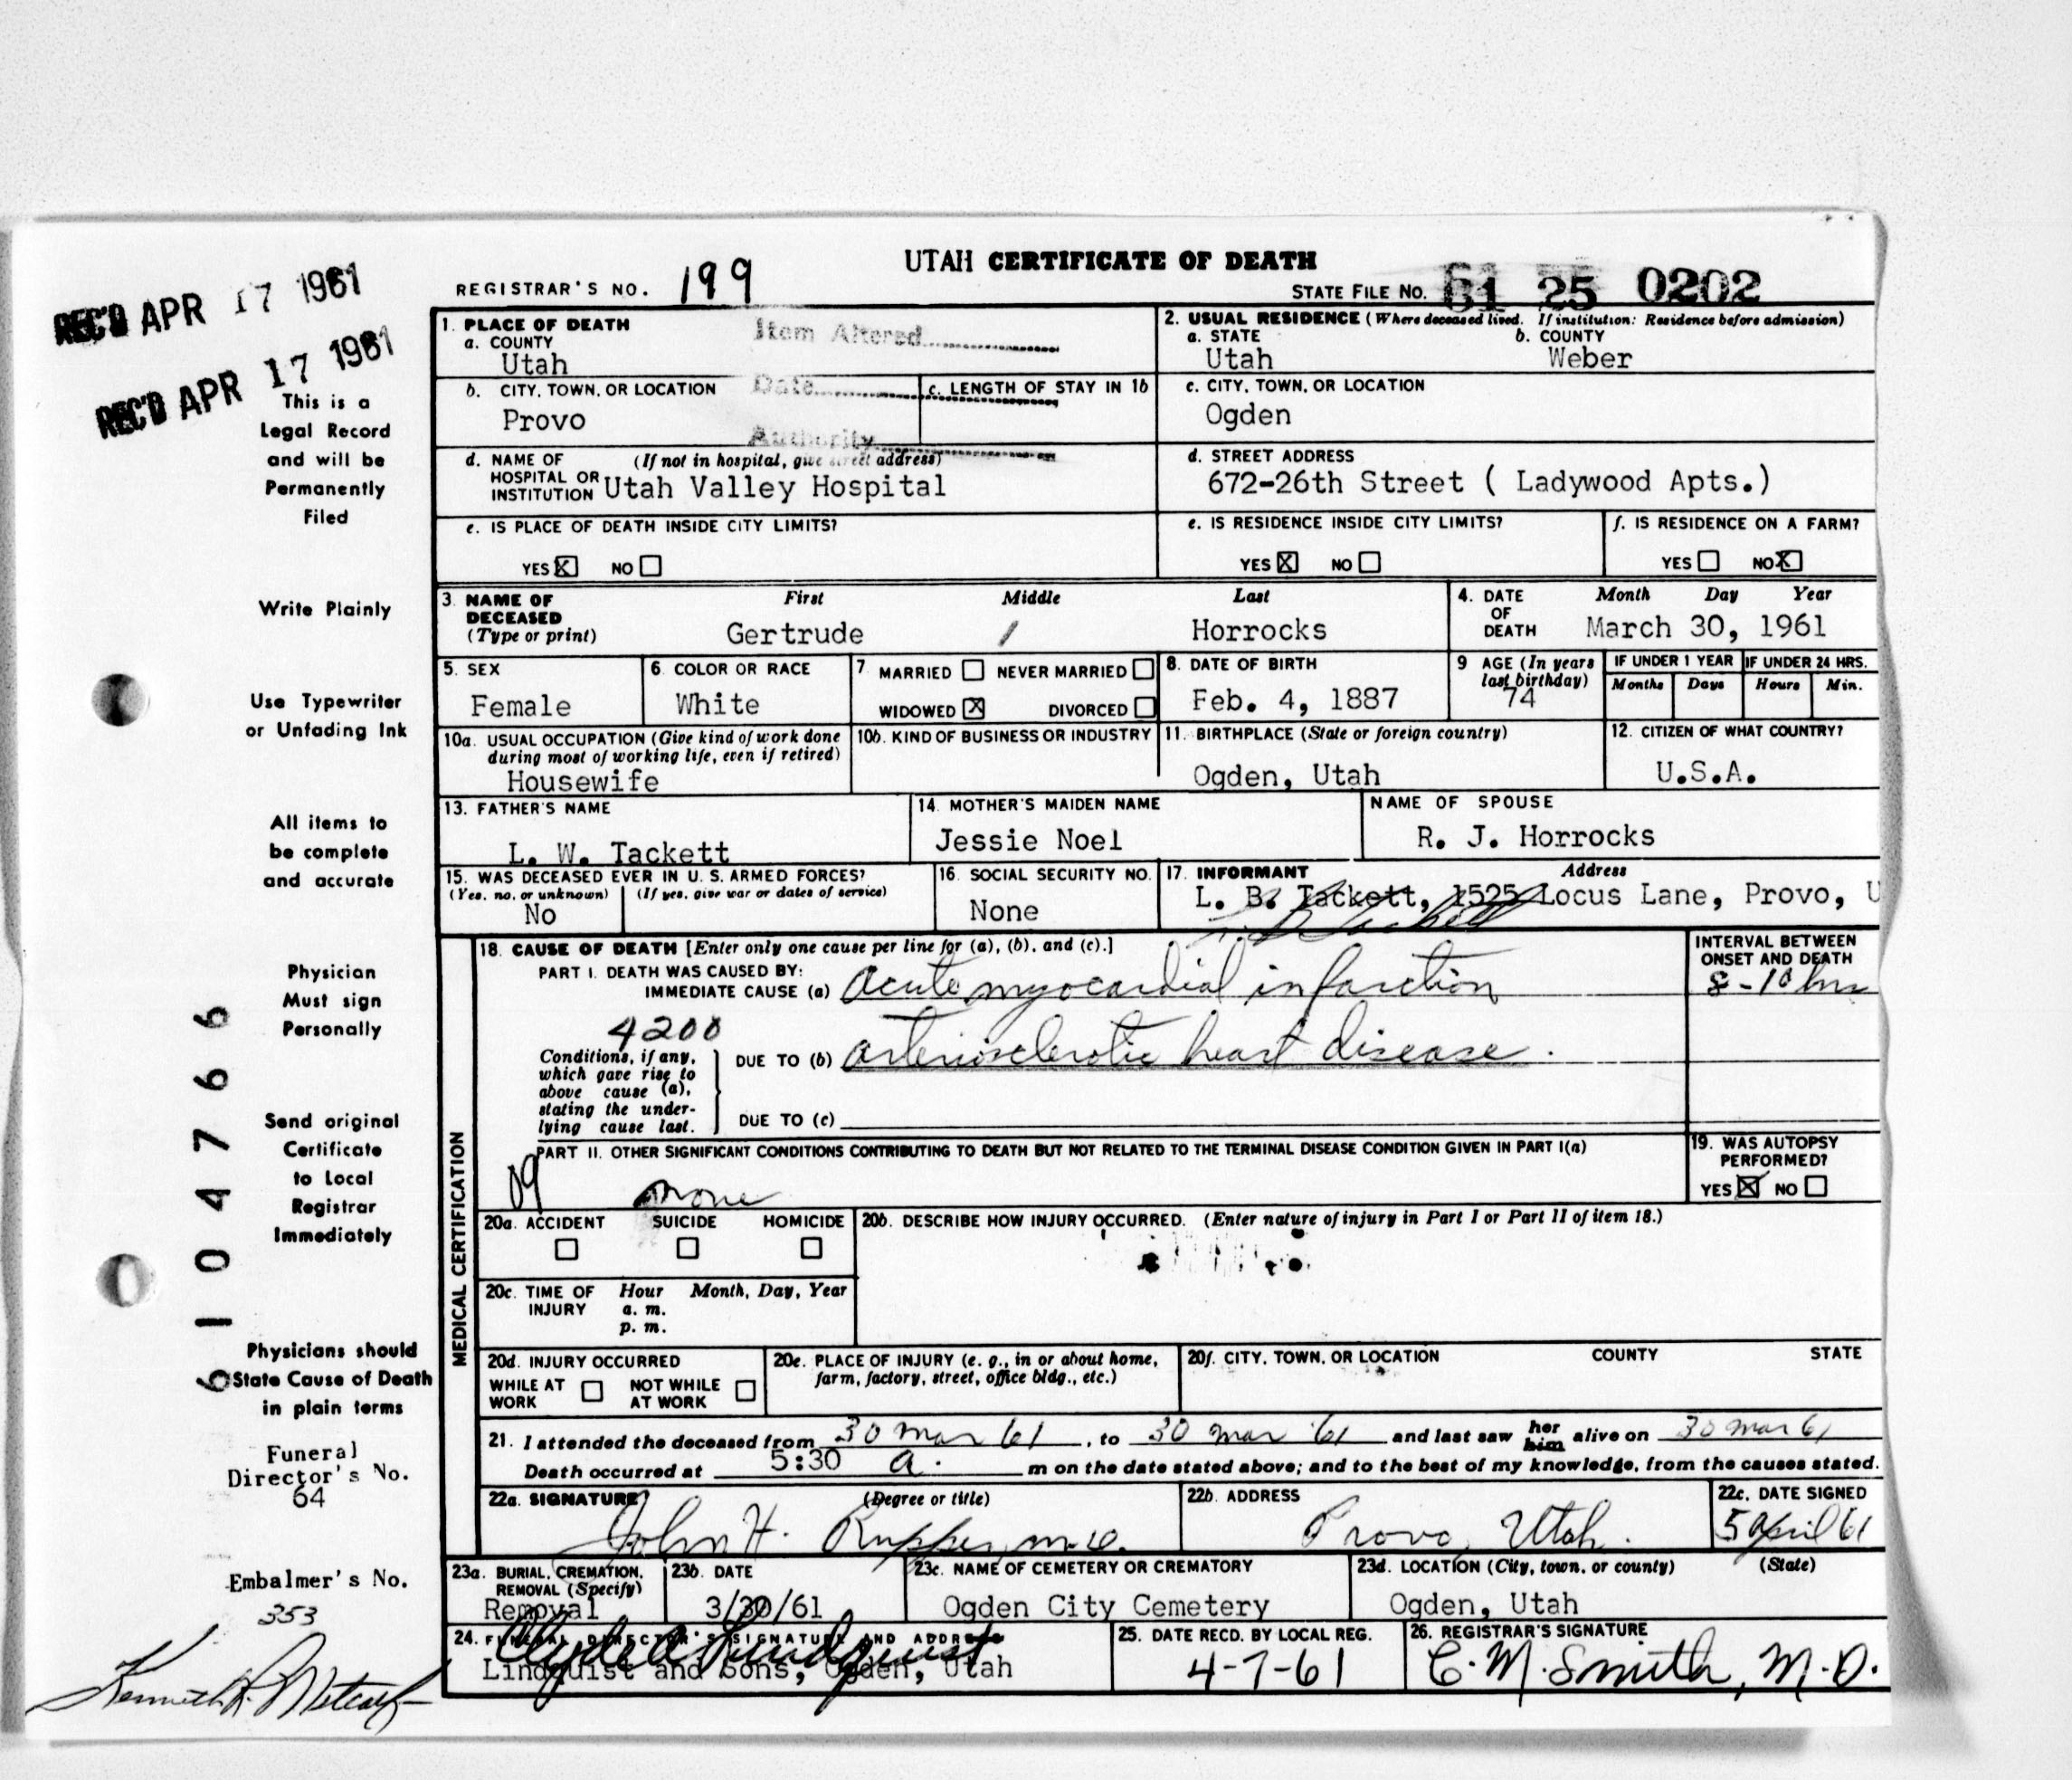 UTAH CERTIFICATE OF DEATH
REC'D APR 17 1961
REC'D APR 17 1961
REGISTRAR'S NO. 199
STATE FILE NO. 61 25 0202
This is a
Legal Record
and will be
Permanently
Filed
Write Plainly
Use Typewriter
or Unfading Ink
All items to
be complete
and accurate
Physician
Must sign
Personally
Send original
Certificate
to Local
Registrar
Immediately
Physicians should
State Cause of Death
in plain terms
Funeral
Director's No.
64
Embalmer's No.
353
Kenneth R. Metcalf
6104766
1. PLACE OF DEATH
a. COUNTY
Utah
Item Altered
Date
Authority
2. USUAL RESIDENCE (Where deceased lived. If institution: Residence before admission)
a. STATE b. COUNTY
Utah Weber
b. CITY, TOWN, OR LOCATION
Provo
c. LENGTH OF STAY IN 1b
c. CITY, TOWN, OR LOCATION
Ogden
d. NAME OF (If not in hospital, give street address)
HOSPITAL OR
INSTITUTION Utah Valley Hospital
d. STREET ADDRESS
672-26th Street ( Ladywood Apts.)
e. IS PLACE OF DEATH INSIDE CITY LIMITS?
YES X NO
e. IS RESIDENCE INSIDE CITY LIMITS?
YES X NO
f. IS RESIDENCE ON A FARM?
YES NO X
3. NAME OF First Middle Last
DECEASED
(Type or print) Gertrude / Horrocks
4. DATE Month Day Year
OF
DEATH March 30, 1961
5. SEX
Female
6. COLOR OR RACE
White
7. MARRIED NEVER MARRIED
WIDOWED X DIVORCED
8. DATE OF BIRTH
Feb. 4, 1887
9 AGE (In years
last birthday)
74
IF UNDER 1 YEAR IF UNDER 24 HRS.
Months Days Hours Min.
10a. USUAL OCCUPATION (Give kind of work done
during most of working life, even if retired)
Housewife
10b. KIND OF BUSINESS OR INDUSTRY
11. BIRTHPLACE (State or foreign country)
Ogden, Utah
12. CITIZEN OF WHAT COUNTRY?
U.S.A.
13. FATHER'S NAME
L. W. Tackett
14. MOTHER'S MAIDEN NAME
Jessie Noel
NAME OF SPOUSE
R. J. Horrocks
15. WAS DECEASED EVER IN U. S. ARMED FORCES?
(Yes, no, or unknown) (If yes, give war or dates of service)
No
16. SOCIAL SECURITY NO.
None
17. INFORMANT Address
L. B. Tackett, 1525 Locus Lane, Provo, U
MEDICAL CERTIFICATION
18. CAUSE OF DEATH [Enter only one cause per line for (a), (b), and (c).]
PART I. DEATH WAS CAUSED BY:
IMMEDIATE CAUSE (a) acute myocardial infarction
4200
Conditions, if any,
which gave rise to
above cause (a),
stating the under-
lying cause last.
DUE TO (b) arteriosclerotic heart disease.
DUE TO (c)
INTERVAL BETWEEN
ONSET AND DEATH
8-10 hrs
PART II. OTHER SIGNIFICANT CONDITIONS CONTRIBUTING TO DEATH BUT NOT RELATED TO THE TERMINAL DISEASE CONDITION GIVEN IN PART I(a)
none
19. WAS AUTOPSY
PERFORMED?
YES X NO
20a. ACCIDENT SUICIDE HOMICIDE
20b. DESCRIBE HOW INJURY OCCURRED. (Enter nature of injury in Part I or Part II of item 18.)
20c. TIME OF Hour Month, Day, Year
INJURY a. m.
p. m.
20d. INJURY OCCURRED
WHILE AT NOT WHILE
WORK AT WORK
20e. PLACE OF INJURY (e. g., in or about home,
farm, factory, street, office bldg., etc.)
20f. CITY, TOWN, OR LOCATION COUNTY STATE
21. I attended the deceased from 30 Mar 61, to 30 Mar '61 and last saw her him alive on 30 Mar 61
Death occurred at 5:30 a. m on the date stated above; and to the best of my knowledge, from the causes stated.
22a. SIGNATURE (Degree or title)
John H. Rupper, M.D.
22b. ADDRESS
Provo, Utah.
22c. DATE SIGNED
5 April 61
23a. BURIAL, CREMATION,
REMOVAL (Specify)
Removal
23b. DATE
3/30/61
23c. NAME OF CEMETERY OR CREMATORY
Ogden City Cemetery
23d. LOCATION (City, town, or county) (State)
Ogden, Utah
24. FUNERAL DIRECTOR'S SIGNATURE AND ADDRESS
Clyde A Lindquist
Lindquist and Sons, Ogden, Utah
25. DATE RECD. BY LOCAL REG.
4-7-61
26. REGISTRAR'S SIGNATURE
C. M. Smith, M.D.